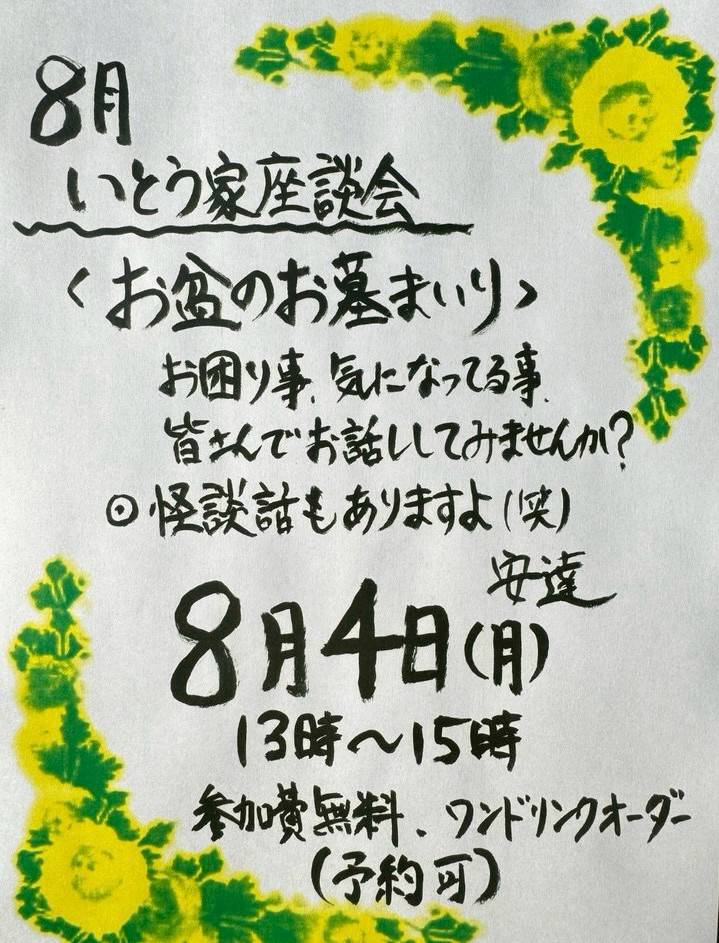 8月
いとう家座談会
<お盆のお墓まいり>
お困り事、気になってる事、
皆さんでお話ししてみませんか?
⊙怪談話もありますよ(笑)
安達
8月4日(月)
13時～15時
参加費無料、ワンドリンクオーダー
(予約可)